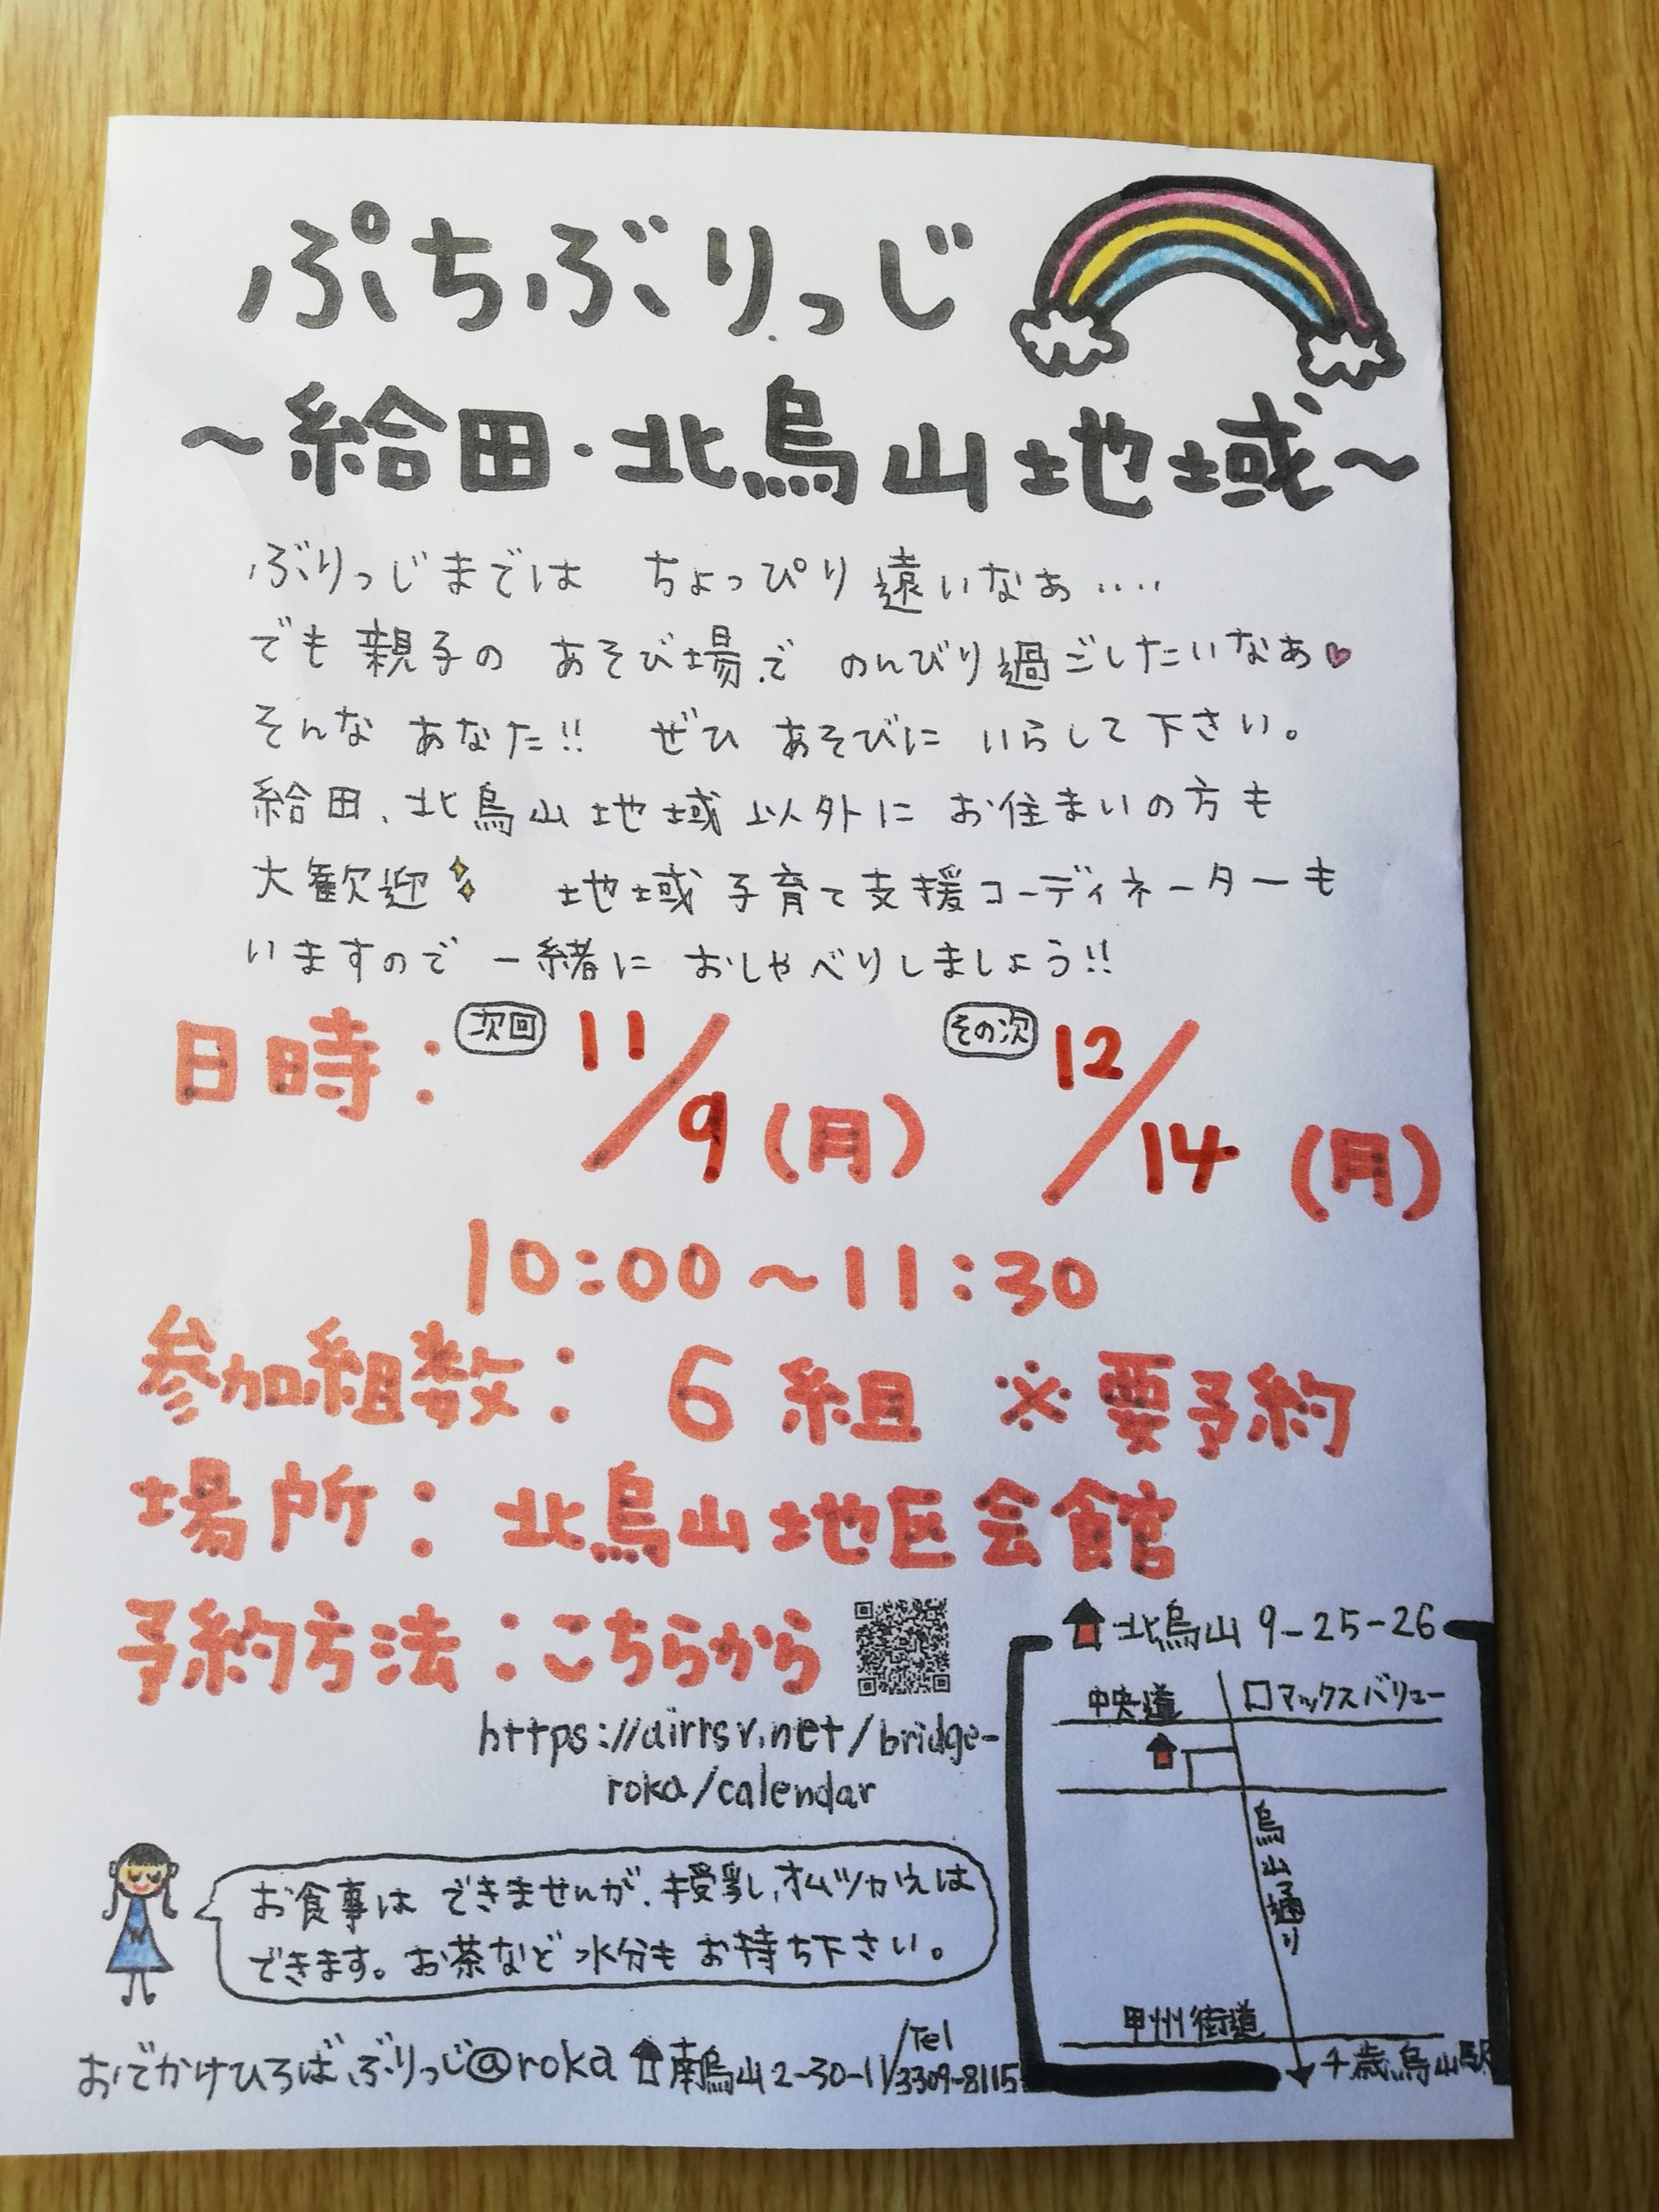 ぷちぶりっじ
～給田・北烏山地域～
ぶりっじまでは ちょっぴり遠いなぁ‥‥
でも親子の あそび場で のんびり過ごしたいなぁ♡
そんな あなた!! ぜひ あそびに いらして下さい。
給田、北烏山地域以外に お住まいの方も
大歓迎 地域子育て支援コーディネーターも
いますので 一緒に おしゃべりしましょう!!
日時: 次回 11/9(月) その次 12/14(月)
10:00～11:30
参加組数: 6組 ※要予約
場所: 北烏山地区会館
予約方法:こちらから
https://airrsv.net/bridge-
roka/calendar
北烏山 9-25-26
中央道 マックスバリュー
烏山通り
甲州街道
千歳烏山駅
お食事は できませんが、授乳、オムツかえは
できます。お茶など 水分も お持ち下さい。
おでかけひろば ぶりっじ@roka 南烏山2-30-11/Tel 3309-8115